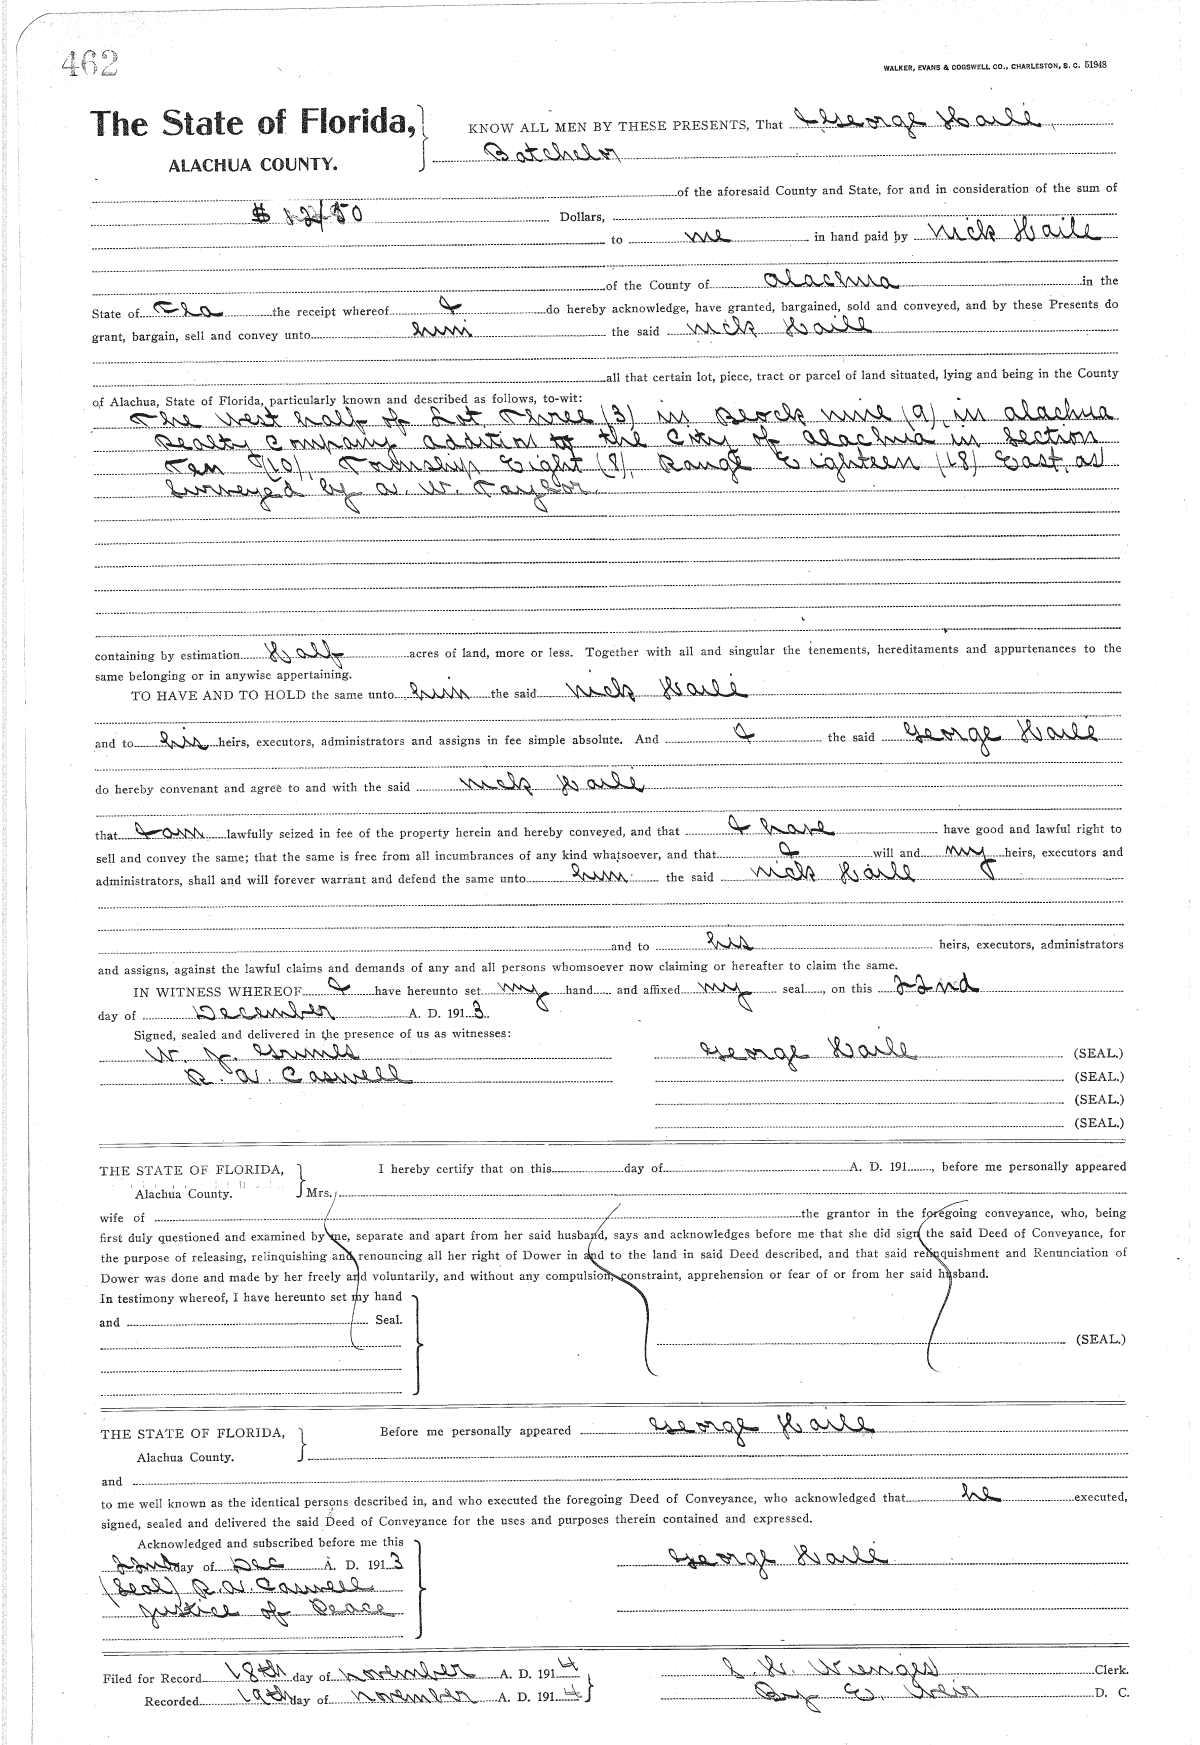 462
WALKER, EVANS & COGSWELL CO., CHARLESTON, S. C. 51948
The State of Florida,
ALACHUA COUNTY.
KNOW ALL MEN BY THESE PRESENTS, That I George Haile,
Batchelor
of the aforesaid County and State, for and in consideration of the sum of
$ 50 Dollars,
to me in hand paid by Nick Haile
of the County of Alachua in the
State of Fla the receipt whereof I do hereby acknowledge, have granted, bargained, sold and conveyed, and by these Presents do
grant, bargain, sell and convey unto him the said Nick Haile
all that certain lot, piece, tract or parcel of land situated, lying and being in the County
of Alachua, State of Florida, particularly known and described as follows, to-wit:
The West half of Lot Three (3) in Block nine (9) in Alachua
Realty Company addition to the City of Alachua in Section
Ten (10), Township Eight (8), Range Eighteen (18) East, as
Surveyed by A. W. Taylor.
containing by estimation Half acres of land, more or less. Together with all and singular the tenements, hereditaments and appurtenances to the
same belonging or in anywise appertaining.
TO HAVE AND TO HOLD the same unto him the said Nick Haile
and to his heirs, executors, administrators and assigns in fee simple absolute. And I the said George Haile
do hereby convenant and agree to and with the said Nick Haile
that I am lawfully seized in fee of the property herein and hereby conveyed, and that I have have good and lawful right to
sell and convey the same; that the same is free from all incumbrances of any kind whatsoever, and that I will and my heirs, executors and
administrators, shall and will forever warrant and defend the same unto him the said Nick Haile
and to his heirs, executors, administrators
and assigns, against the lawful claims and demands of any and all persons whomsoever now claiming or hereafter to claim the same.
IN WITNESS WHEREOF I have hereunto set my hand and affixed my seal, on this 22nd
day of December A. D. 1913.
Signed, sealed and delivered in the presence of us as witnesses:
W. J. Grimes George Haile (SEAL.)
R. W. Caswell (SEAL.)
(SEAL.)
(SEAL.)
THE STATE OF FLORIDA,
Alachua County.
I hereby certify that on this day of A. D. 191 , before me personally appeared
Mrs.
wife of the grantor in the foregoing conveyance, who, being
first duly questioned and examined by me, separate and apart from her said husband, says and acknowledges before me that she did sign the said Deed of Conveyance, for
the purpose of releasing, relinquishing and renouncing all her right of Dower in and to the land in said Deed described, and that said relinquishment and Renunciation of
Dower was done and made by her freely and voluntarily, and without any compulsion, constraint, apprehension or fear of or from her said husband.
In testimony whereof, I have hereunto set my hand
and Seal.
(SEAL.)
THE STATE OF FLORIDA,
Alachua County.
Before me personally appeared George Haile
and
to me well known as the identical persons described in, and who executed the foregoing Deed of Conveyance, who acknowledged that he executed,
signed, sealed and delivered the said Deed of Conveyance for the uses and purposes therein contained and expressed.
Acknowledged and subscribed before me this
22nd day of Dec A. D. 1913 George Haile
(Seal) R. W. Caswell
Justice of Peace
Filed for Record 18th day of November A. D. 1914 Clerk.
Recorded 19th day of November A. D. 1914 By E. Weir D. C.